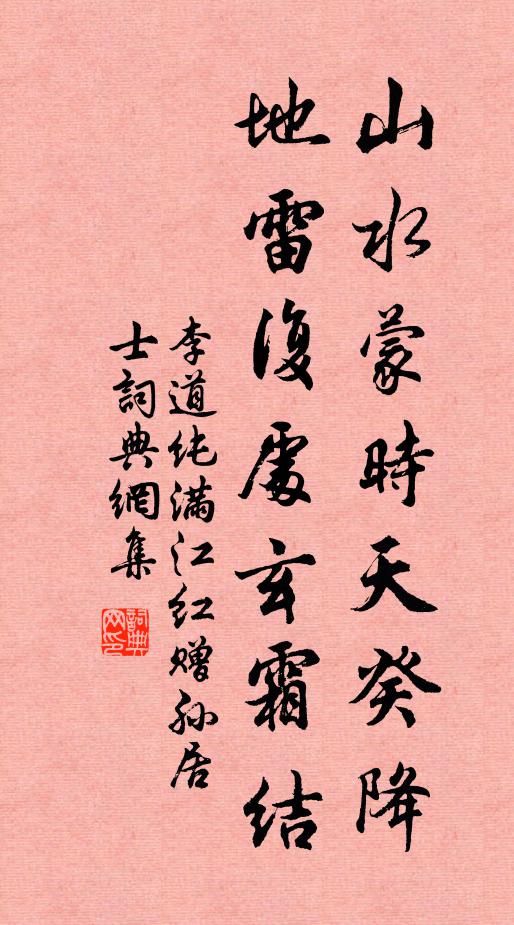 山水蒙時天癸降
地雷復處玄霜結
李道纯滿江红赠孙居
士詞典網集
詞典网印